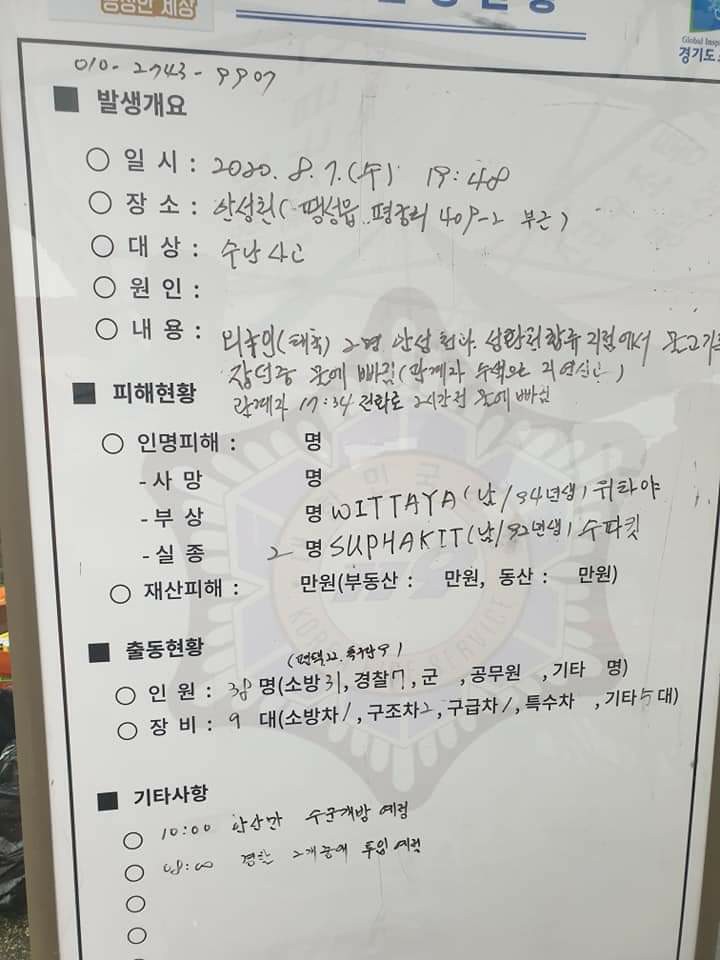 안전한 세상
Global Insp
경기도소
010-2743-9907
■ 발생개요
○ 일 시 : 2020. 8. 7.(수) 19:48
○ 장 소 : 안성천( 팽성읍 평궁리 409-2 부근 )
○ 대 상 : 수난사고
○ 원 인 :
○ 내 용 : 외국인(태국) 2명 안성천과 성환천합류 지점에서 물고기를
잡던중 물에 빠짐(관계자 수색으로 지연신고)
관계자 17:34 전화로 2시간전 물에 빠짐
■ 피해현황
○ 인명피해 : 명
- 사 망 명
- 부 상 명 WITTAYA(남/94년생) 위타야
- 실 종 2 명 SUPHAKIT(남/92년생) 수파킷
○ 재산피해 : 만원(부동산 : 만원, 동산 : 만원)
■ 출동현황
(평택22, 특수단9)
○ 인 원 : 38 명(소방31, 경찰7, 군 , 공무원 , 기타 명)
○ 장 비 : 9 대(소방차1, 구조차2, 구급차1, 특수차 , 기타5대)
■ 기타사항
○ 10:00 수문개방 예정
○ 08:00 경찰 2개중대 투입 예정
○
○